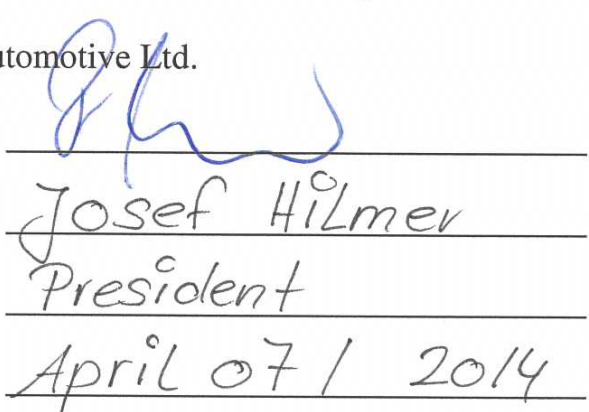 utomotive Ltd.
Josef Hilmer
President
April 07/ 2014